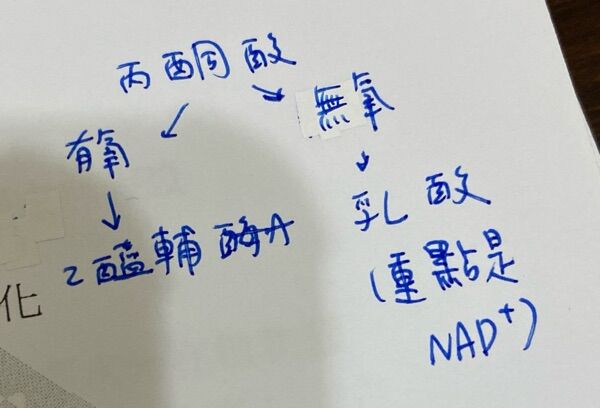 丙酮酸
有氧
無氧
乙醯輔酶A
乳酸
(重點是
NAD⁺)
化